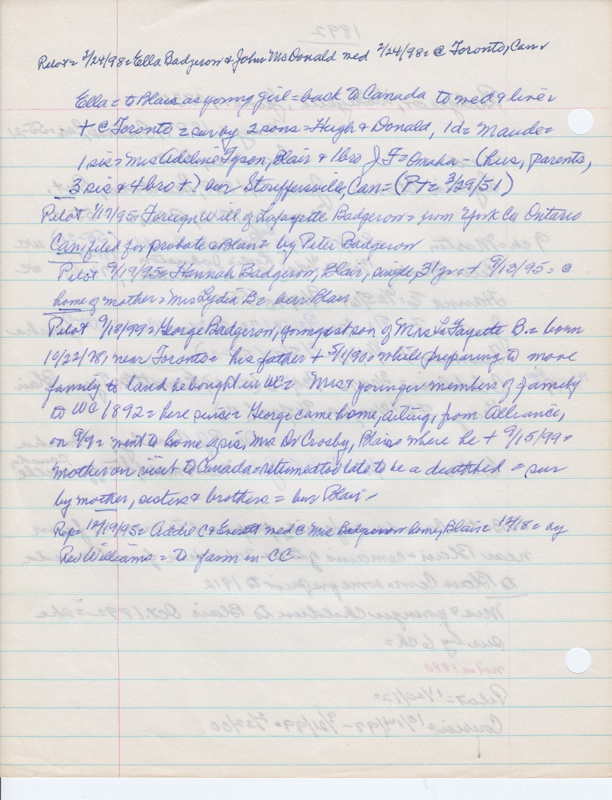 Pilot = 2/24/98 = Ella Badgerow & John McDonald med 2/24/98 = @ Toronto, Can
Ella = to Blair as young girl = back to Canada to med & live =
+ @ Toronto = sur by 2 sons = Hugh & Donald, 1 d = Maude =
1 sis = Mrs Adeline Tyson, Blair & 1 bro J F = Omaha - (hus, parents,
3 sis & 4 bro +) bur Stouffersville, Can = (PT = 3/29/51)
Pilot 1/17/95 = Foreign Will of Lafayette Badgerow = from York Co Ontario
Can filed for probate @ Blair = by Peter Badgerow
Pilot 9/19/95 = Hannah Badgerow, Blair, single, 31 yr = + 9/13/95 = @
home of mother = Mrs Lydia B = bur Blair
Pilot 9/18/99 = George Badgerow, youngest son of Mrs La Fayette B. = born
10/22/78, near Toronto = his father + 5/1/90 = while preparing to move
family to land he bought in WC = Mrs & younger members of family
to WC 1892 = here since = George came home, ailing, from Alliance,
on 9/9 = went to home of sis, Mrs Dr Crosby, Blair = where he + 9/15/99 =
Mother on visit to Canada = returned too late to be @ deathbed = sur
by mother, sisters & brothers = bur Blair
Rep = 12/19/95 = Addie C & Everett med @ Mrs Badgerow home, Blair = 12/18 = by
Rev Williams = To farm in CC